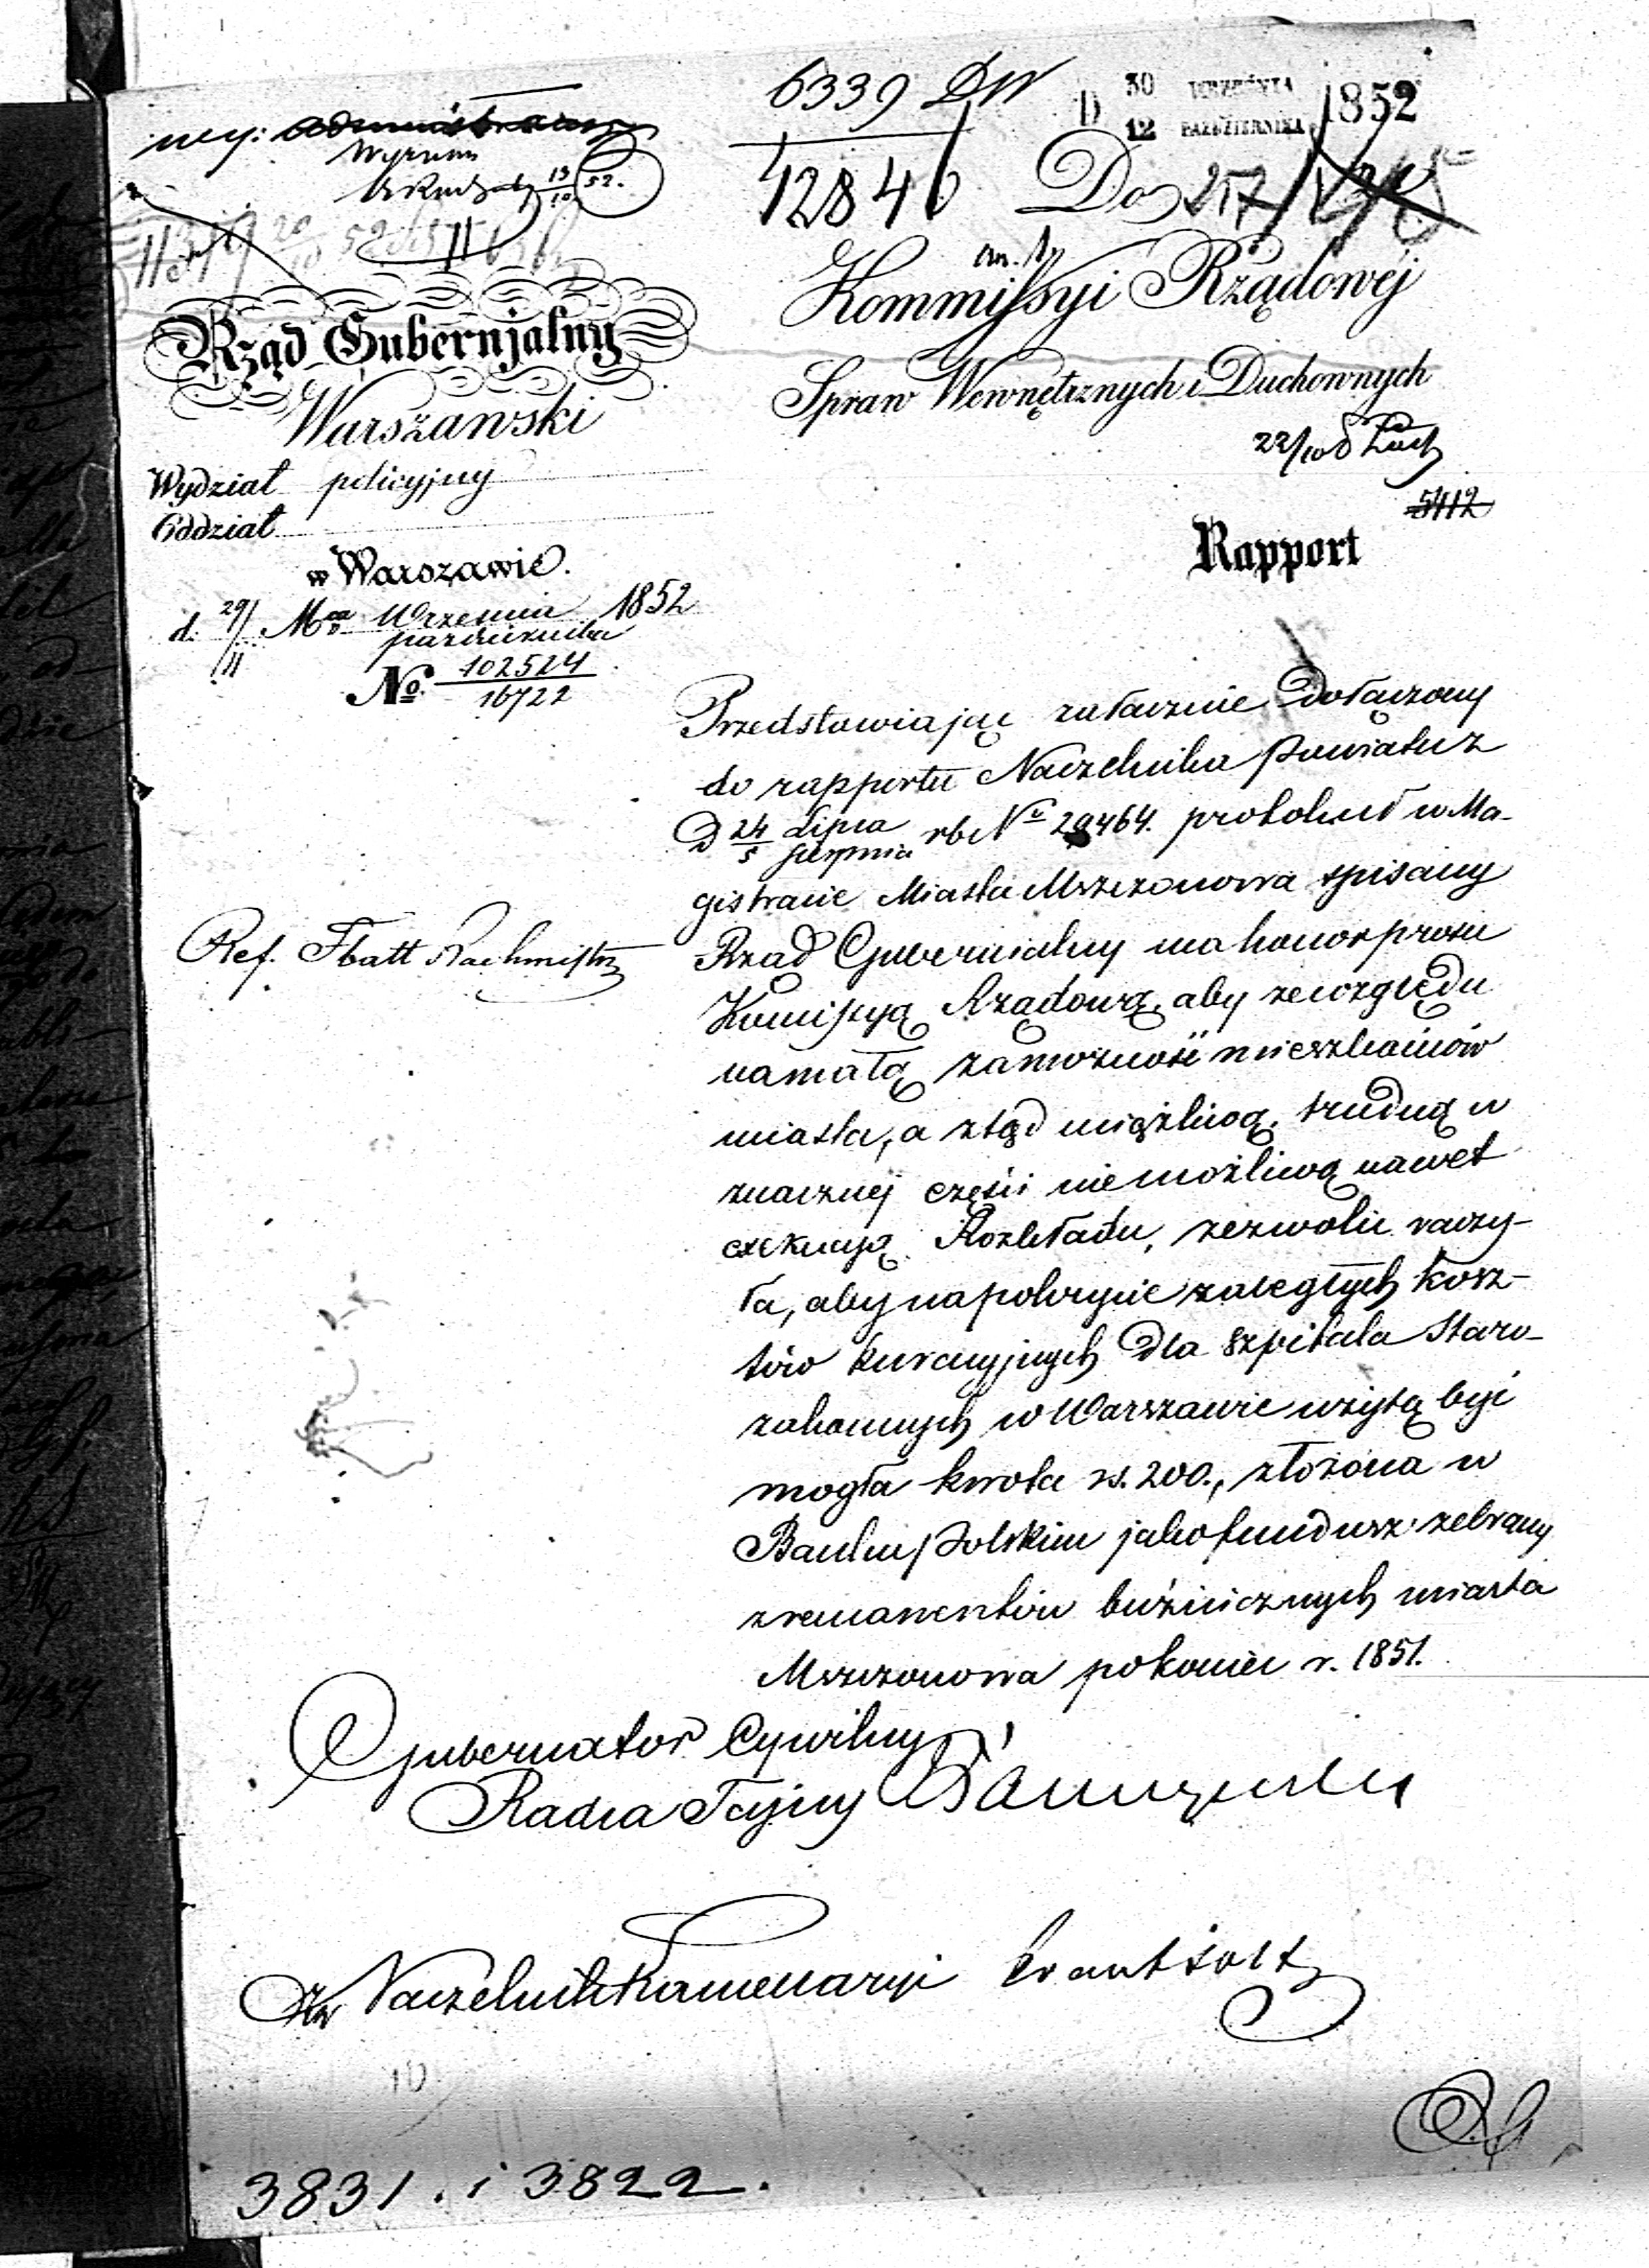 6339 DW
D 30 WRZEŚNIA 1852
12 PAZDZIERNIKA
wyz: 
12846 Do 257
13/10 52.
m. 1
Rząd Gubernjalny
Warszawski
Wydział policyjny
Oddział
w Warszawie.
d. 29/11 Mca Wrzesnia 1852
pazdziernika
No. 102524
16722
Kommissyi Rządowéj
Spraw Wewnętrznych i Duchownych
22/10
5412
Rapport
Ref. Rachmistrz
Przedstawiając załącznie dołączony
do rapportu Naczelnika Powiatu z
D 24/5 Lipca/Sierpnia rb No 29464. protokuł w Ma-
gistracie Miasta Mszczonowa spisany
Rząd Gubernialny ma honor prosić
Komissyą Rządową, aby ze względu
na małą zamożność mieszkańców
miasta, a ztąd uciążliwą, trudną w
znacznej części niemożliwą nawet
exekucyą Rozkładu, zezwolić raczy-
ła, aby na pokrycie zaległych kosz-
tów kuracyjnych dla szpitala Staro-
zakonnych w Warszawie użytą być
mogła kwota rs. 200., złożona w
Banku Polskim jako fundusz zebrany
z remanentów bóźniczych miasta
Mszczonowa po koniec r. 1851.
Gubernator Cywilny
Radca Tajny
Naczelnik Kancellaryi
3831. i 3822.